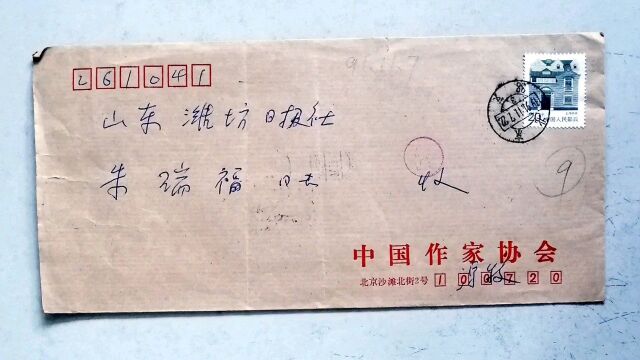 261041
山东 潍坊日报社
朱瑞福 同志 收
9
20 中国人民邮政
中国作家协会
北京沙滩北街2号 100720